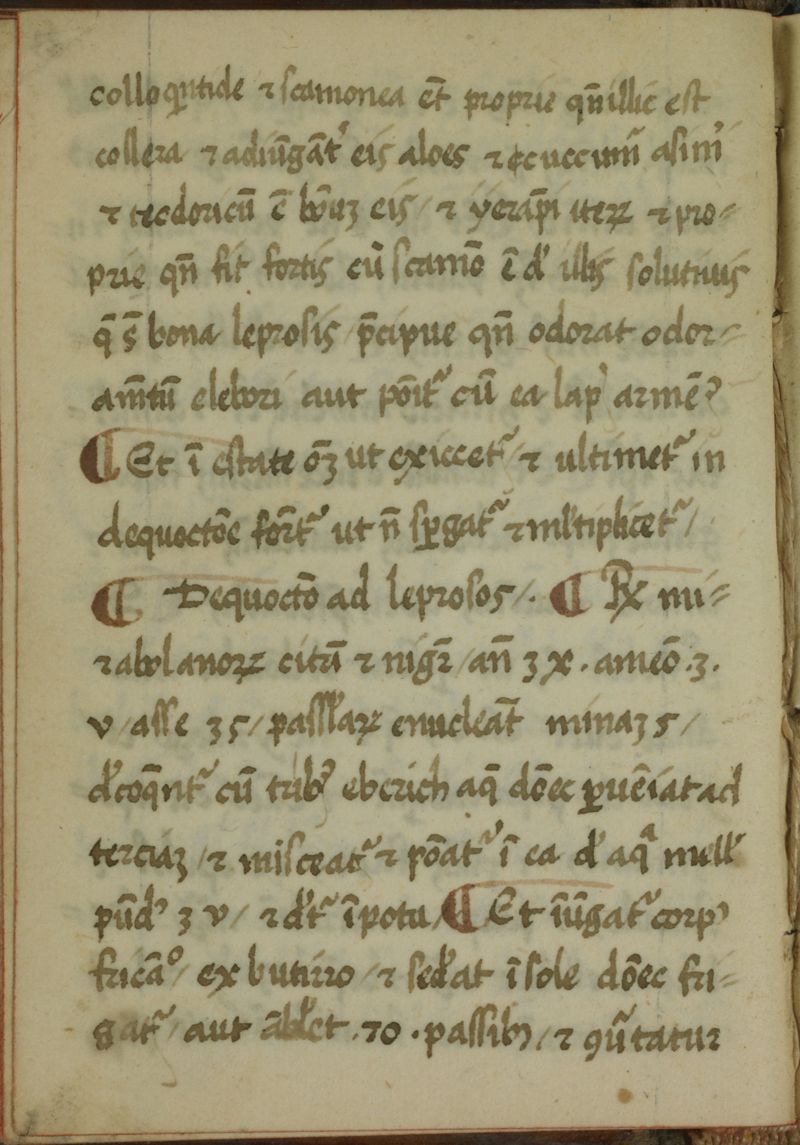 colloqntide ⁊ scamonea et̄ proprie qn̄ illic est
collera ⁊ adiūgāt᷑ eis aloes ⁊ cuccumū asini
⁊ teodoricū ē bōuʒ eis / ⁊ yerap̄i iteꝝ ⁊ pro⸗
prie qn̄ fit fortis cū scamō ē d' illis solutiuis
q̄ s̄ bona leprosis / p̄cipue qn̄ odorat odor⸗
am̄tū elebori aut pōit᷑ cū ea lap' armē?
¶ Et ī estate oʒ ut exiccet᷑ ⁊ ultimet᷑ in
dequoctōe fort᷑ ut n̄ spgat᷑ ⁊ ml̄tiplicet᷑ /
¶ Dequoctō ad leprosos /. ¶ ℞ mi⸗
rabolanoꝝ citrī ⁊ nigrī / an̄ ʒ x . ameō . ʒ .
v / asse ʒ 5 / passularꝝ enucleāt minaʒ 5 /
d'coq̄nt᷑ cū trib' eberich aq̄ dōec ꝑuēiat ad
terciaʒ / ⁊ misceat᷑ ⁊ pōat᷑ ī ea d' aqͣ mell'
pūd' ʒ v / ⁊ d't᷑ ī potu / ¶ Et īūgat᷑ corp'
fricāº / ex butirro / ⁊ sed'at ī sole dōec fri⸗
gat᷑ / aut āb'let . 70 . passibꝫ / ⁊ ꝯūtatur